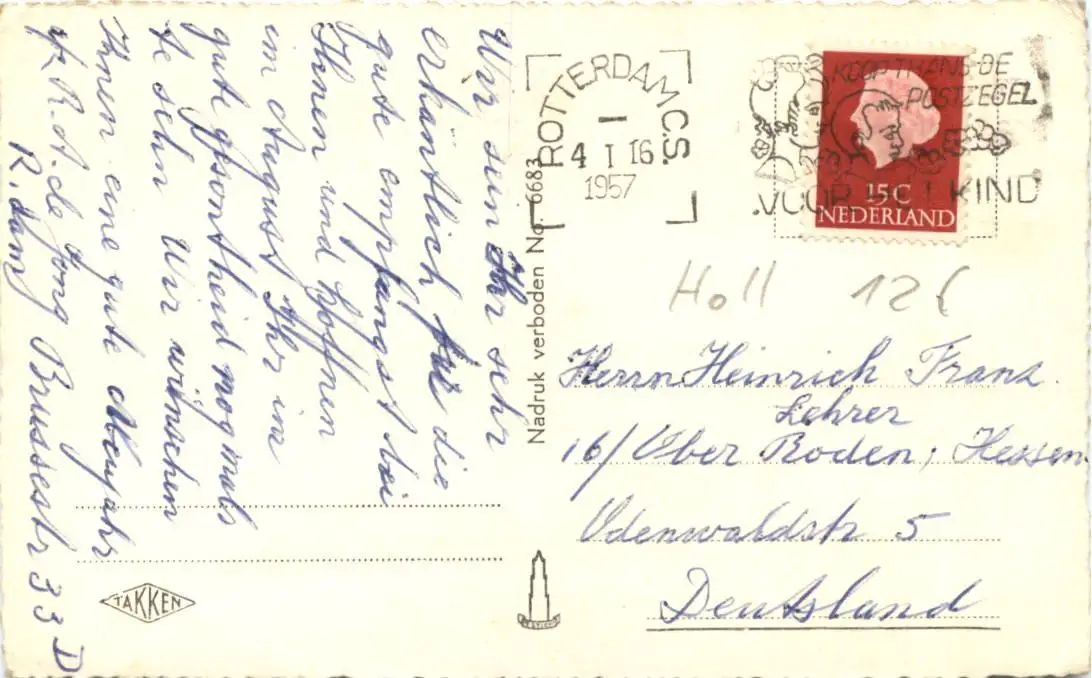 Wir sein Ihr sehr
erkäntlich für die
gute empfangst bei
Ihnen und hoffnen
im August Ihr in
gute gesontheid nogmals
te sehn Wir wünschen
Ihnen eine gute Neujahr
R.A. de Jong Brussestr 33 D
R.dam
Nadruk verboden No. 6683
TAKKEN
ROTTERDAM C.S.
4 I 16
1957
KOOP THANS DE
POSTZEGEL
VOOR KIND
15 C
NEDERLAND
Holl 126
Herrn Heinrich Franz.
Lehrer
16/ Ober Roden, Hessen
Odenwaldstr 5
Deutsland